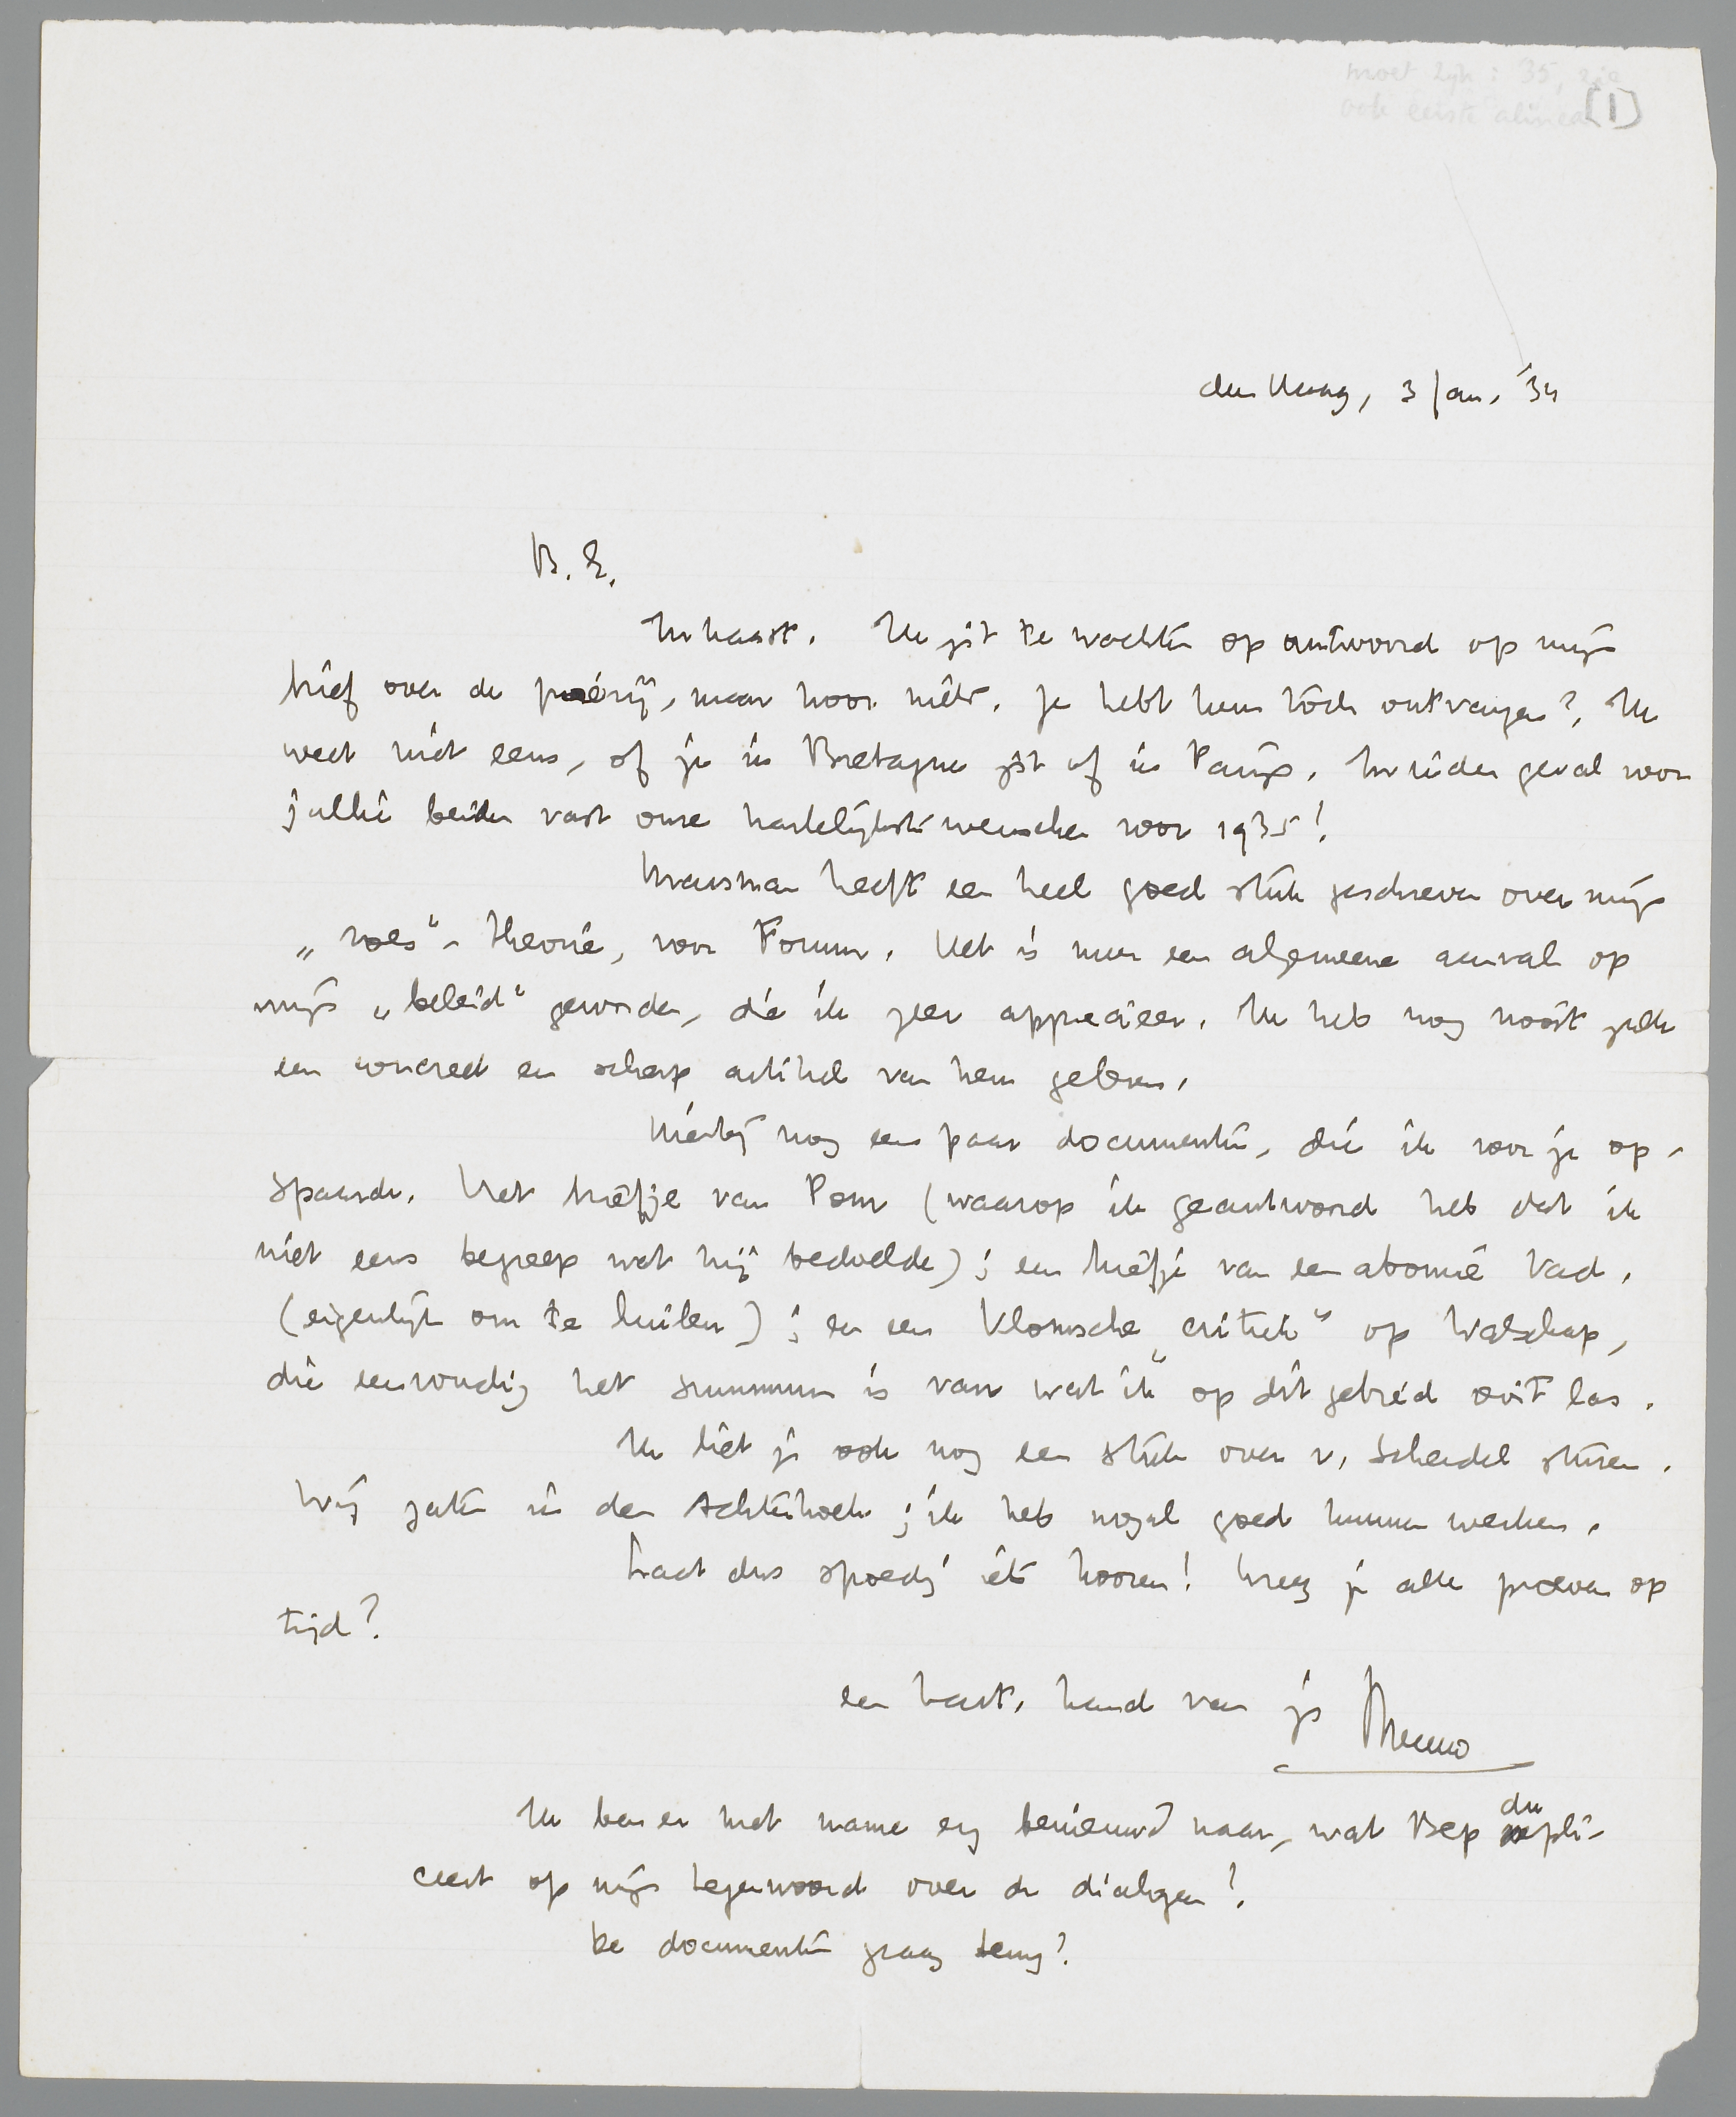 moet zijn: 35, zie
ook eerste alinea [1]
den Haag, 3 Jan. '34
B. E.
In haast. Ik zit te wachten op antwoord op mijn
brief over de poëzij, maar hoor niets. Je hebt hem tòch ontvangen? Ik
weet niet eens, of je in Bretagne zit of in Parijs. In ieder geval voor
jullie beiden vast onze hartelijkste wenschen voor 1935!
Marsman heeft een heel goed stuk geschreven over mijn
„roes"-theorie, voor Forum. Het is meer een algemeene aanval op
mijn „beleid" geworden, die ik zeer apprecieer. Ik heb nog nooit zulk
een concreet en scherp artikel van hem gelezen.
Hierbij nog een paar documenten, die ik voor je op-
spaarde. Het briefje van Pom (waarop ik geantwoord heb dat ik
niet eens begreep wat hij bedoelde); een briefje van een abonné Vad.
(eigenlijk om te huilen); en een Vlomsche „critiek" op Walschap,
die eenvoudig het summum is van wat ik op dit gebied ooit las.
Ik liet je ook nog een stuk over v. Schendel sturen.
Wij zaten in den Achterhoek; ik heb nogal goed kunnen werken.
Laat dus spoedig iets hooren! Kreeg je alle proeven op
tijd?
een hart. hand van je Menno
Ik ben er met name erg benieuwd naar, wat Bep dupli-
ceert op mijn tegenwoord over de dialogen!
De documenten graag terug?